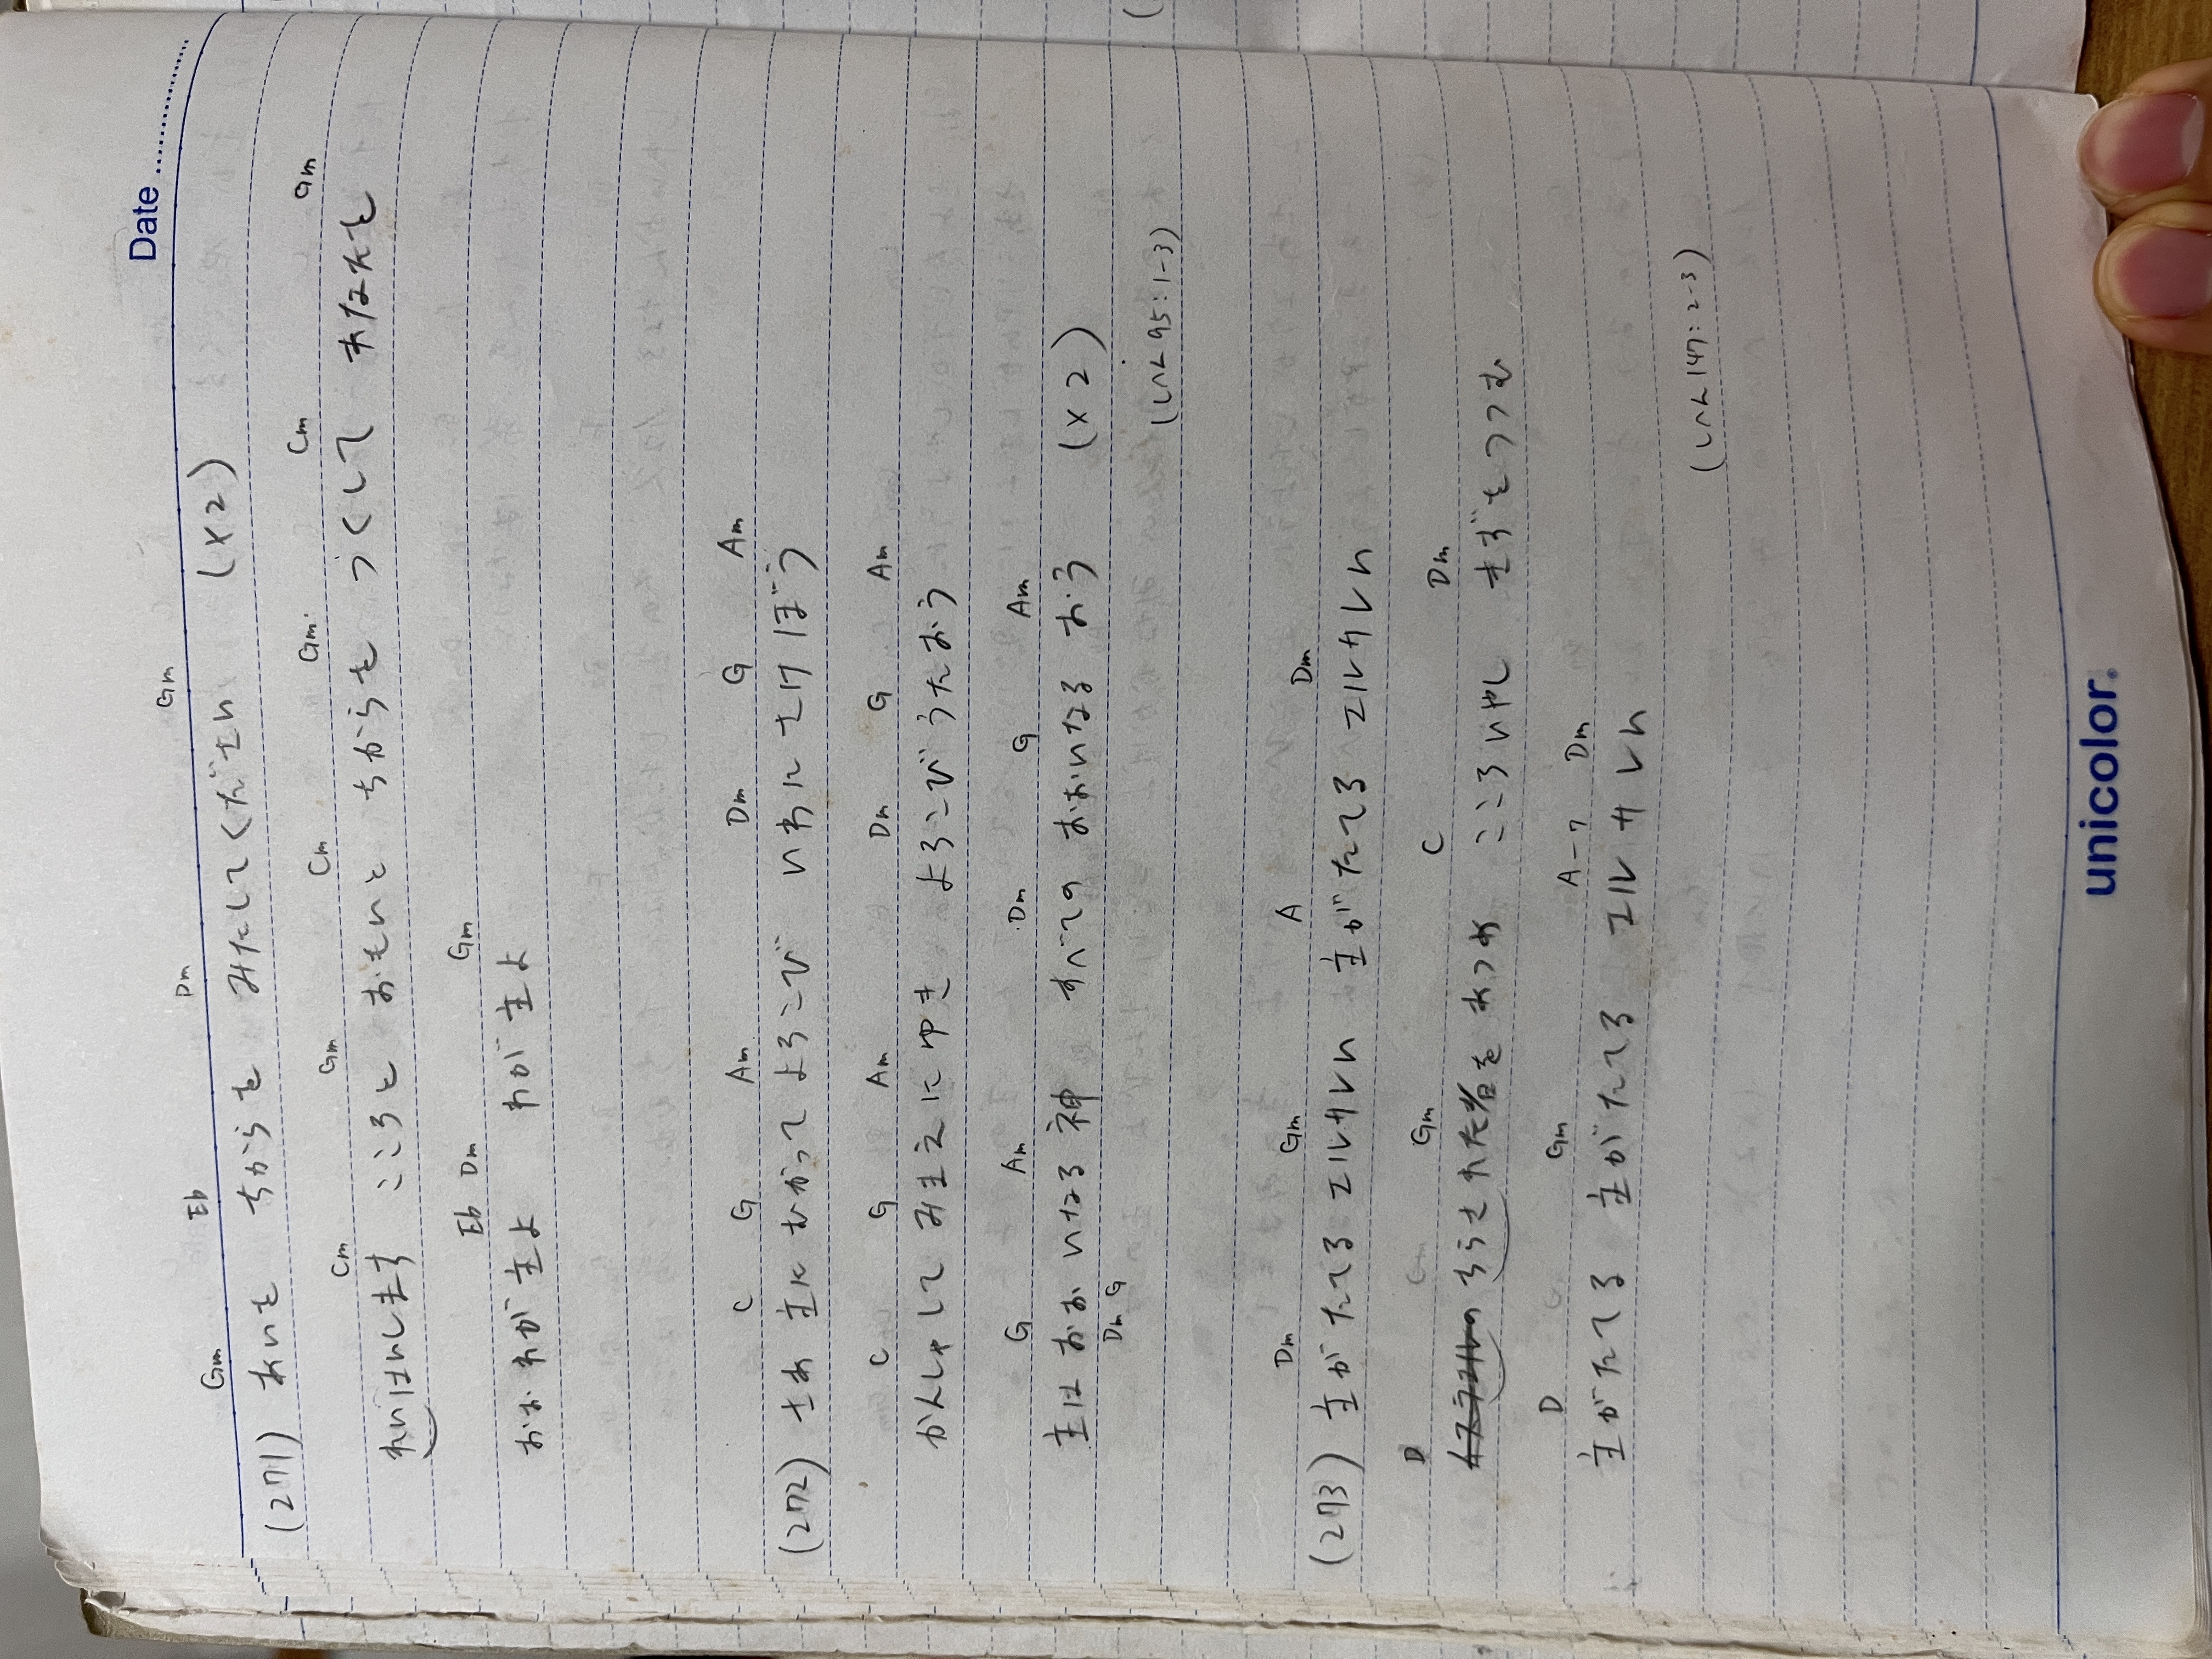 Date
Gm Eb Dm Gm
(271) あいを ちからを みたしてください (×2)
Cm Gm Cm Gm Cm Gm
れいはいします こころと おもいと ちからを つくして あなたを
Eb Dm Gm
おおわが主よ わが主よ
C G Am Dm G Am
(272) さあ主にむかって よろこび いわにさけぼう
C G Am Dm G Am
かんしゃして みまえにゆき よろこびうたおう
G Am Dm G Am
主はおおいなる神 すべての おおいなる おう (×2)
Dm G
(しへん95:1-3)
Dm Gm A Dm
(273) 主がたてるエルサレム 主がたてる エルサレム
D Gm C Dm
ちらされた者をあつめ こころいやし きずをつつむ
D Gm A-7 Dm
主がたてる 主がたてる エルサレム
(しへん147:2-3)
unicolor.